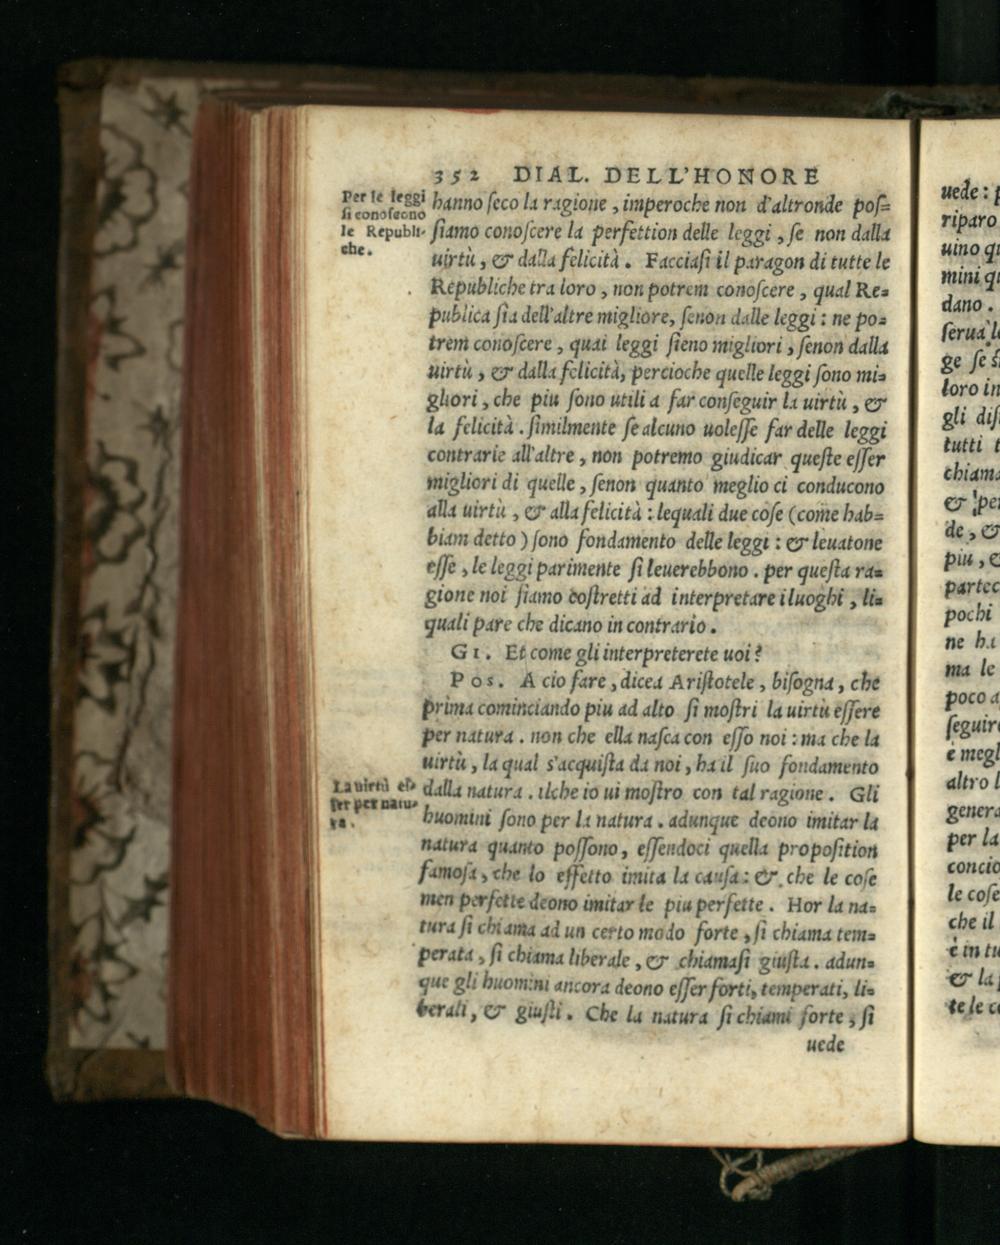 352 DIAL. DELL'HONORE
Per le leggi
si conoscono
le Republi-
che.
hanno seco la ragione, imperoche non d'altronde pos=
siamo conoscere la perfettion delle leggi, se non dalla
uirtù, & dalla felicità. Facciasi il paragon di tutte le
Republiche tra loro, non potrem conoscere, qual Re=
publica sia dell'altre migliore, senon dalle leggi: ne po=
trem conoscere, quai leggi sieno migliori, senon dalla
uirtù, & dalla felicità, percioche quelle leggi sono mi=
gliori, che piu sono utili a far conseguir la uirtù, &
la felicità. similmente se alcuno uolesse far delle leggi
contrarie all'altre, non potremo giudicar queste esser
migliori di quelle, senon quanto meglio ci conducono
alla uirtù, & alla felicità: lequali due cose (come hab=
biam detto) sono fondamento delle leggi: & leuatone
esse, le leggi parimente si leuerebbono. per questa ra=
gione noi siamo costretti ad interpretare i luoghi, li=
quali pare che dicano in contrario.
GI. Et come gli interpreterete uoi?
POS. A cio fare, dicea Aristotele, bisogna, che
prima cominciando piu ad alto si mostri la uirtù essere
per natura. non che ella nasca con esso noi: ma che la
uirtù, la qual s'acquista da noi, ha il suo fondamento
La uirtù es=
ser per natu=
ra.
dalla natura. ilche io ui mostro con tal ragione. Gli
huomini sono per la natura. adunque deono imitar la
natura quanto possono, essendoci quella proposition
famosa, che lo effetto imita la causa: & che le cose
men perfette deono imitar le piu perfette. Hor la na=
tura si chiama ad un certo modo forte, si chiama tem=
perata, si chiama liberale, & chiamasi giusta. adun=
que gli huomini ancora deono esser forti, temperati, li=
berali, & giusti. Che la natura si chiami forte, si
uede
uede: p
riparo
uino qu
mini qu
dano.
serua le
ge se
loro in
gli dis
tutti t
chiama
& per
de, &
piu, e
partec
pochi
ne ha
ma le
poco a
seguire
è megl
altro l
genera
per la
concio
le cose
che il
è in tu
& la p
te le co